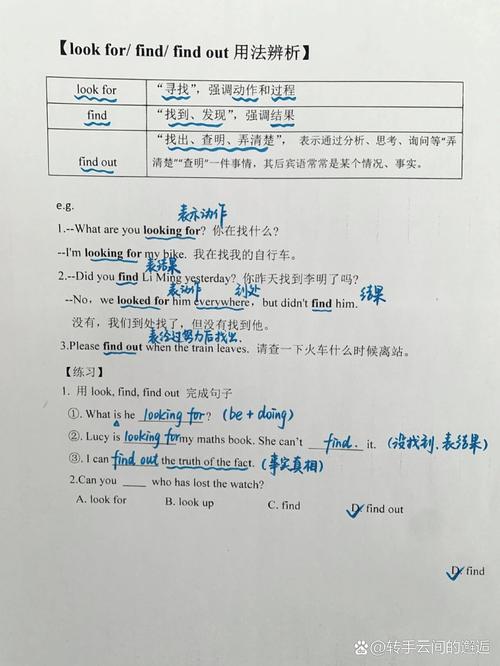 【look for/ find/ find out 用法辨析】
look for “寻找”，强调动作和过程
find “找到、发现”，强调结果
find out “找出、查明、弄清楚”， 表示通过分析、思考、询问等“弄
清楚”“查明”一件事情，其后宾语常常是某个情况、事实。
e.g.
表示动作
1.--What are you looking for? 你在找什么?
--I'm looking for my bike. 我在找我的自行车。
表结果
2.--Did you find Li Ming yesterday? 你昨天找到李明了吗?
表动作 到处 结果
--No, we looked for him everywhere, but didn't find him.
没有，我们到处找了，但没有找到他。
表经过努力后找出.
3.Please find out when the train leaves. 请查一下火车什么时候离站。
【练习】
1. 用 look, find, find out 完成句子
①. What is he looking for? (be + doing)
②. Lucy is looking for my maths book. She can't find. it. (没找到.表结果)
③. I can find out the truth of the fact. (事实真相)
2.Can you ____ who has lost the watch?
A. look for B. look up C. find D. find out
D. find
@转手云间的邂逅